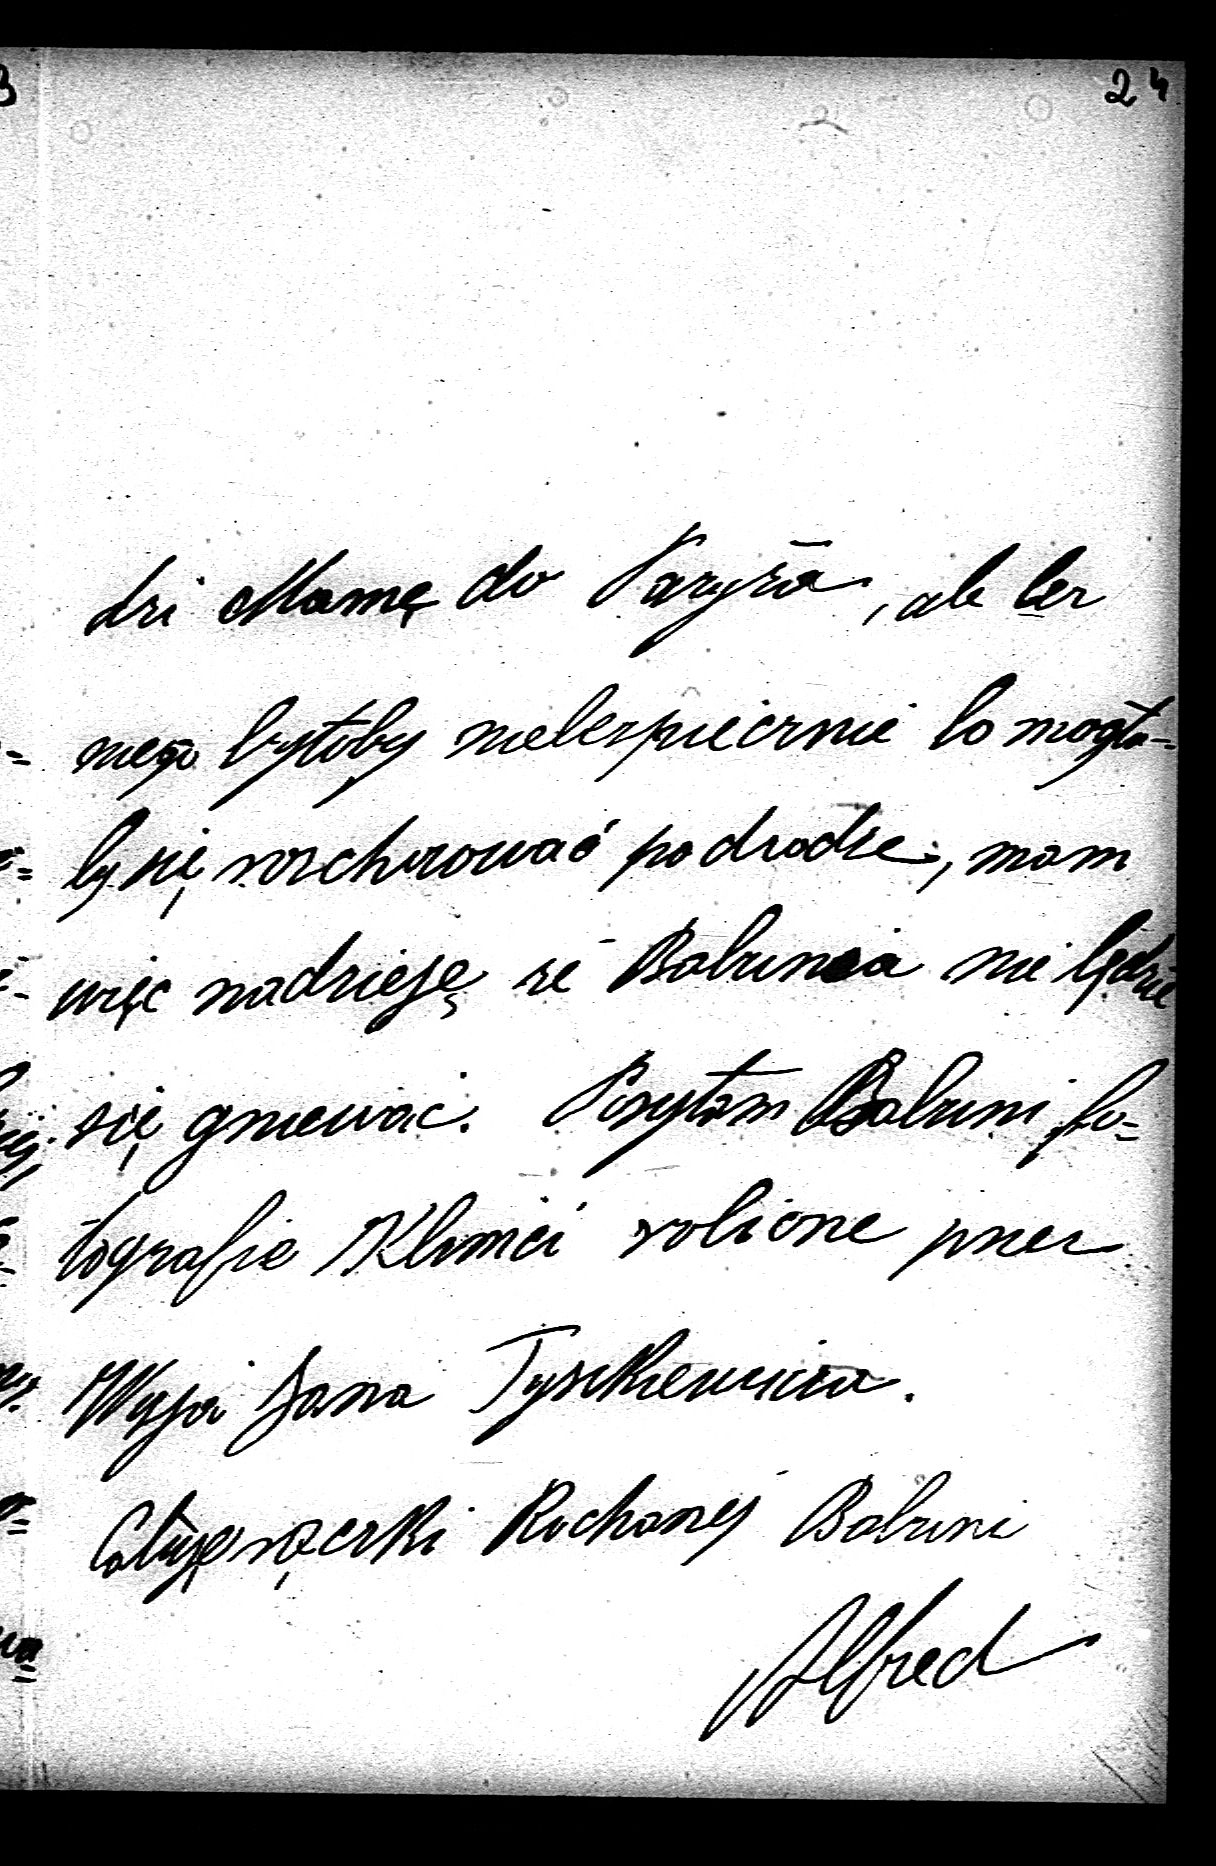 24
dzi Mamę do Paryża, ale bez
niego byłoby niebezpiecznie bo mogła-
by się rozchorować po drodze, mam
więc nadzieję że Babunia nie będzie
się gniewać. Posyłam Babuni fo=
tografie Klimci robione przez
Wuja Jana Tyszkiewicza.
Całuję rączki Kochanej Babuni
Alfred